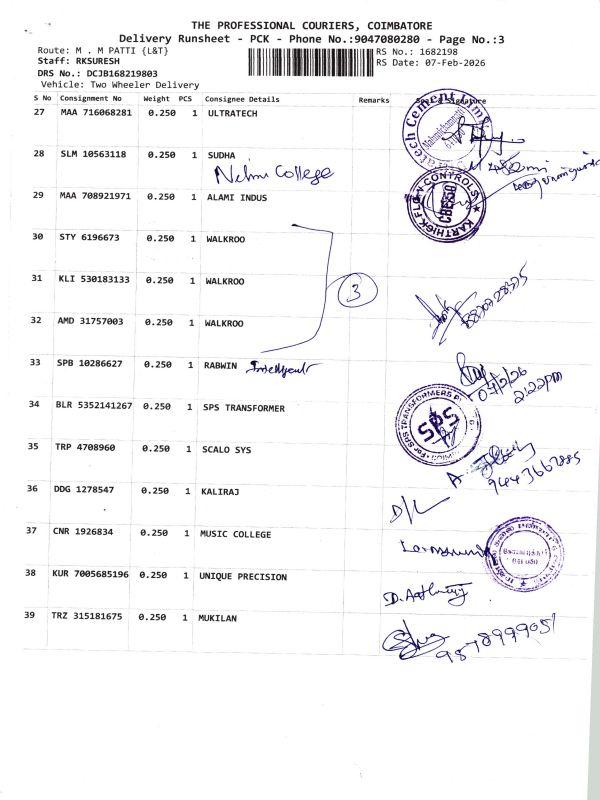 THE PROFESSIONAL COURIERS, COIMBATORE
Delivery Runsheet - PCK - Phone No.:9047080280 - Page No.:3
Route: M . M PATTI {L&T}
RS No.: 1682198
Staff: RKSURESH
RS Date: 07-Feb-2026
DRS No.: DCJB168219803
Vehicle: Two Wheeler Delivery
S No Consignment No Weight PCS Consignee Details Remarks Signature
27 MAA 716068281 0.250 1 ULTRATECH
28 SLM 10563118 0.250 1 SUDHA
Nehru College
29 MAA 708921971 0.250 1 ALAMI INDUS
KARTHICK FLOW CONTROLS
CBE-50
30 STY 6196673 0.250 1 WALKROO
31 KLI 530183133 0.250 1 WALKROO
3
32 AMD 31757003 0.250 1 WALKROO
33 SPB 10286627 0.250 1 RABWIN
2:22pm
34 BLR 5352141267 0.250 1 SPS TRANSFORMER
For SPS TRANSFORMERS
SPS
35 TRP 4708960 0.250 1 SCALO SYS
36 DDG 1278547 0.250 1 KALIRAJ
D/L
37 CNR 1926834 0.250 1 MUSIC COLLEGE
38 KUR 7005685196 0.250 1 UNIQUE PRECISION
39 TRZ 315181675 0.250 1 MUKILAN
9878999051